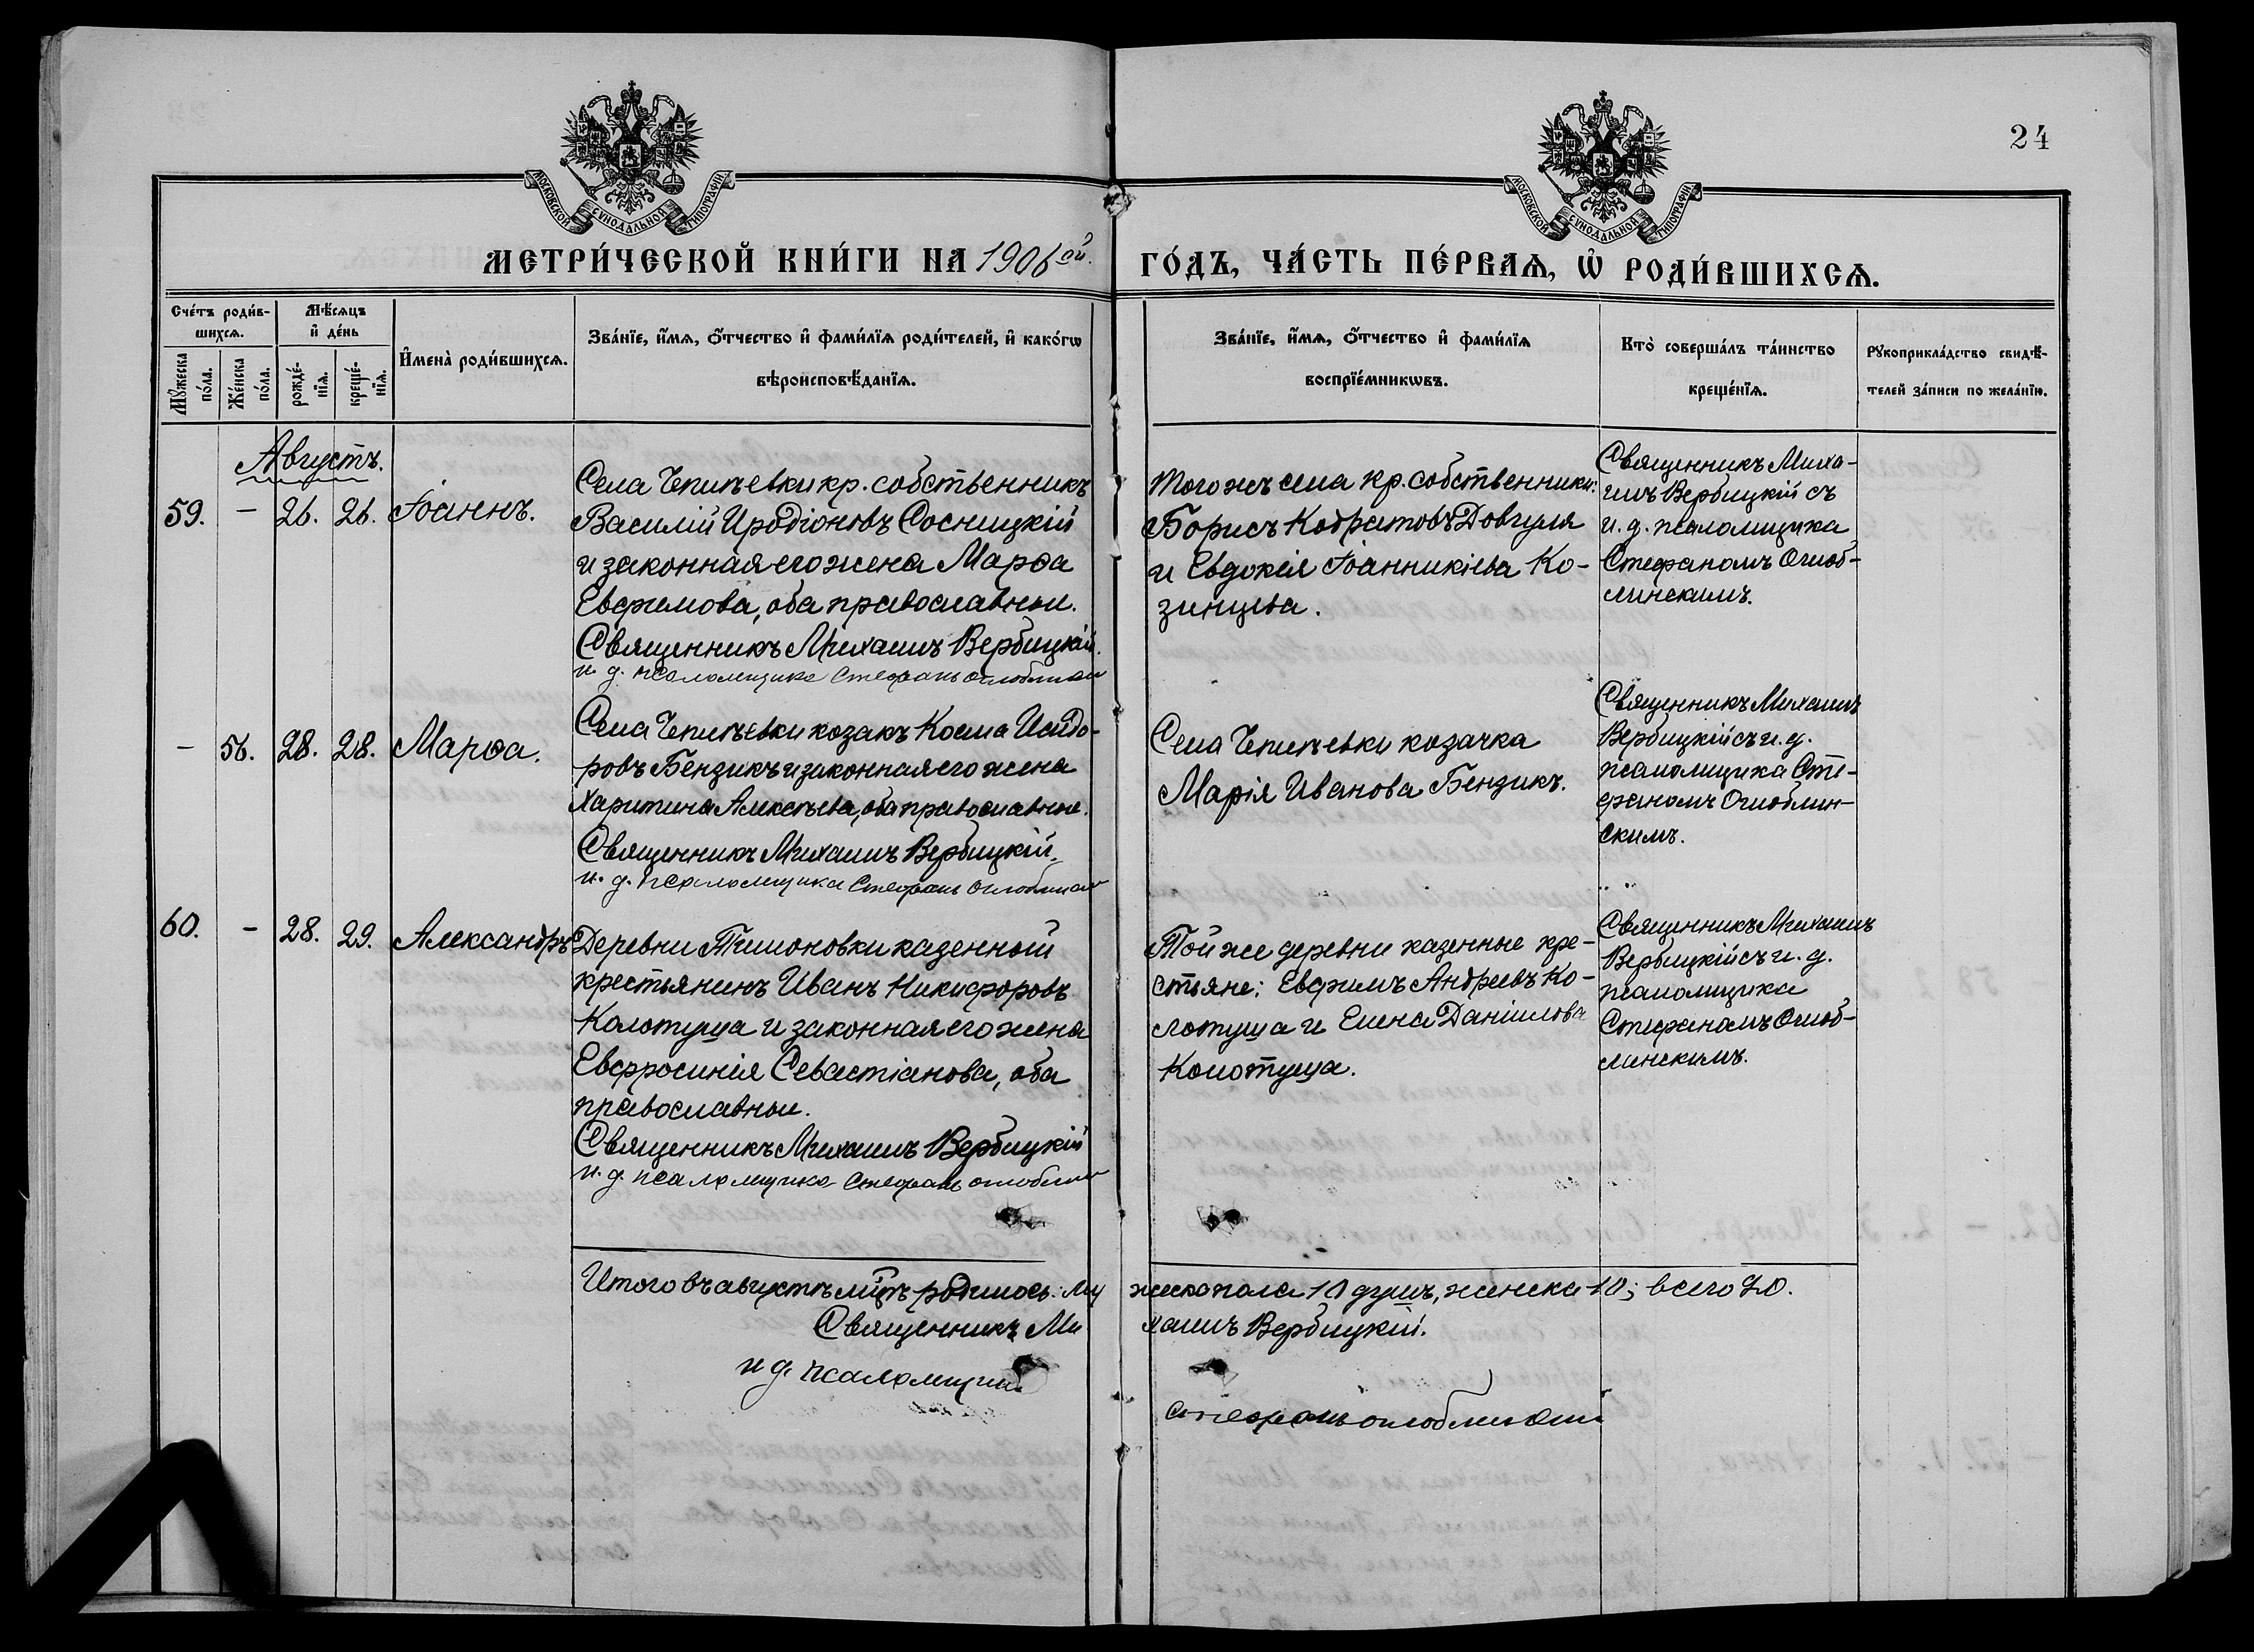 24
МОСКОВСКОЙ СѴНОДАЛЬНОЙ ТИПОГРАФІИ
МОСКОВСКОЙ СѴНОДАЛЬНОЙ ТИПОГРАФІИ
МЕТРИ́ЧЕСКОЙ КНИ́ГИ НА 1906ой. ГО́ДЪ, ЧА́СТЬ ПЕ́РВАѦ, Ѡ҆ РОДИ́ВШИХСѦ.
Сче́тъ роди́в-
шихсѧ.
Мꙋ́жеска по́ла.
Же́нска по́ла.
Мѣ́сѧцъ
и҆ де́нь
рожде́-
нїѧ.
креще́-
нїѧ.
И҆мена̀ роди́вшихсѧ.
Зва́нїе, и҆́мѧ, ѻ҆́тчество и҆ фами́лїѧ роди́телей, и҆ како́гѡ
вѣроисповѣ́данїѧ.
Зва́нїе, и҆́мѧ, ѻ҆́тчество и҆ фами́лїѧ
воспрїе́мникѡвъ.
Кто̀ соверша́лъ та́инство
креще́нїѧ.
Рꙋкоприкла́дство свидѣ́-
телей за́писи по жела́нїю.
Августъ.
59. – 26. 26. Іоаннъ.
Села Чепиѣевки кр. собственникъ
Василій Иродіоновъ Сосницкій
и законная его жена Марѳа
Евфимова, оба православные.
Священникъ Михаилъ Вербицкій.
и. д. псаломщика Стефанъ Оглоблинскій
Того жъ села кр. собственники:
Борисъ Кодратовъ Довгуля
и Евдокія Іоанникіева Ко-
зинцева.
Священникъ Миха-
илъ Вербицкій съ
и. д. псаломщика
Стефаномъ Оглоб-
линскимъ.
– 56. 28. 28. Марѳа.
Села Чепиѣевки козакъ Косма Исидо-
ровъ Бензикъ и законная его жена
Харитина Алексѣева, оба православные.
Священникъ Михаилъ Вербицкій.
и. д. псаломщика Стефанъ Оглоблинскій
Села Чепиѣевки козачка
Марія Иванова Бензикъ.
Священникъ Михаилъ
Вербицкій съ и. д.
псаломщика Сте-
фаномъ Оглоблин-
скимъ.
60. – 28. 29. Александръ
Деревни Тимоновки казенный
крестьянинъ Иванъ Никифоровъ
Колотуша и законная его жена
Евфросинія Севастіанова, оба
православные.
Священникъ Михаилъ Вербицкій
и. д. псаломщика Стефанъ Оглоблинскій
Той же деревни казенные кре-
стьяне: Евфимъ Андреевъ Ко-
лотуша и Елена Даніилова
Колотуша.
Священникъ Михаилъ
Вербицкій съ и. д.
псаломщика
Стефаномъ Оглоб-
линскимъ.
Итого въ августѣ мцѣ родилось: мужеска пола 10 душъ, женска 10; всего 20.
Священникъ Михаилъ Вербицкій.
и д. псаломщика
Стефанъ Оглоблинскій